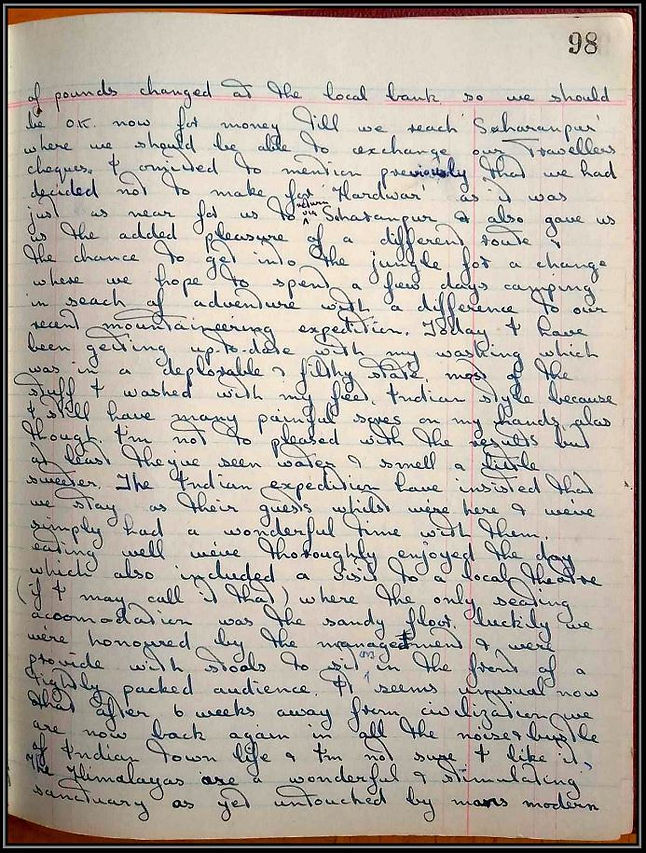 98
of pounds changed at the local bank, so we should
be OK. now for money till we reach 'Saharanpur'
where we should be able to exchange our Travellers
cheques. I omitted to mention previously that we had
decided not to make for 'Hardwar' as it was
just as near for us to return via Saharanpur & also gave us
us the added pleasure of a different route &
the chance to get into the jungle for a change
where we hope to spend a few days camping
in seach of adventure with a difference to our
recent mountaineering expedition. Today I have
been getting up-to-date with my washing which
was in a deplorable & filthy state, most of the
stuff I washed with my feet, Indian style because
I still have many painful sores on my hands, alas
though, I'm not to pleased with the results but
at least they've seen water & smell a little
sweeter. The Indian expedition have insisted that
we stay as their guests whilst we're here & we've
simply had a wonderful time with them,
eating well we've thoroughly enjoyed the day
which also included a visit to a local theatre
(if I may call it that) where the only seating
accomodation was the sandy floor, luckily we
were honoured by the management & were
provide with stools to sit on in the front of a
tightly packed audience. It seems unusual now
that after 6 weeks away from civilization we
are now back again in all the noise & bustle
of Indian town life & I'm not sure I like it,
The Himalayas are a wonderful & stimulating
sanctuary as yet untouched by mans modern